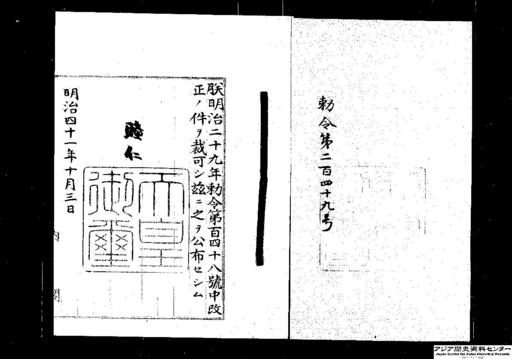 勅令第二百四十九号
朕明治二十九年勅令第百四十八號中改
正ノ件ヲ裁可シ茲ニ之ヲ公布セシム
睦仁
天皇
御璽
明治四十一年十月三日
内閣
アジア歴史資料センター
Japan Center for Asian Historical Records